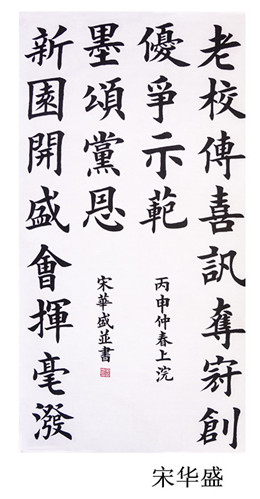 老校傳喜訊奪冠創
優爭示範
新園開盛會揮毫潑
墨頌黨恩
丙申仲春上浣
宋華盛並書
宋华盛